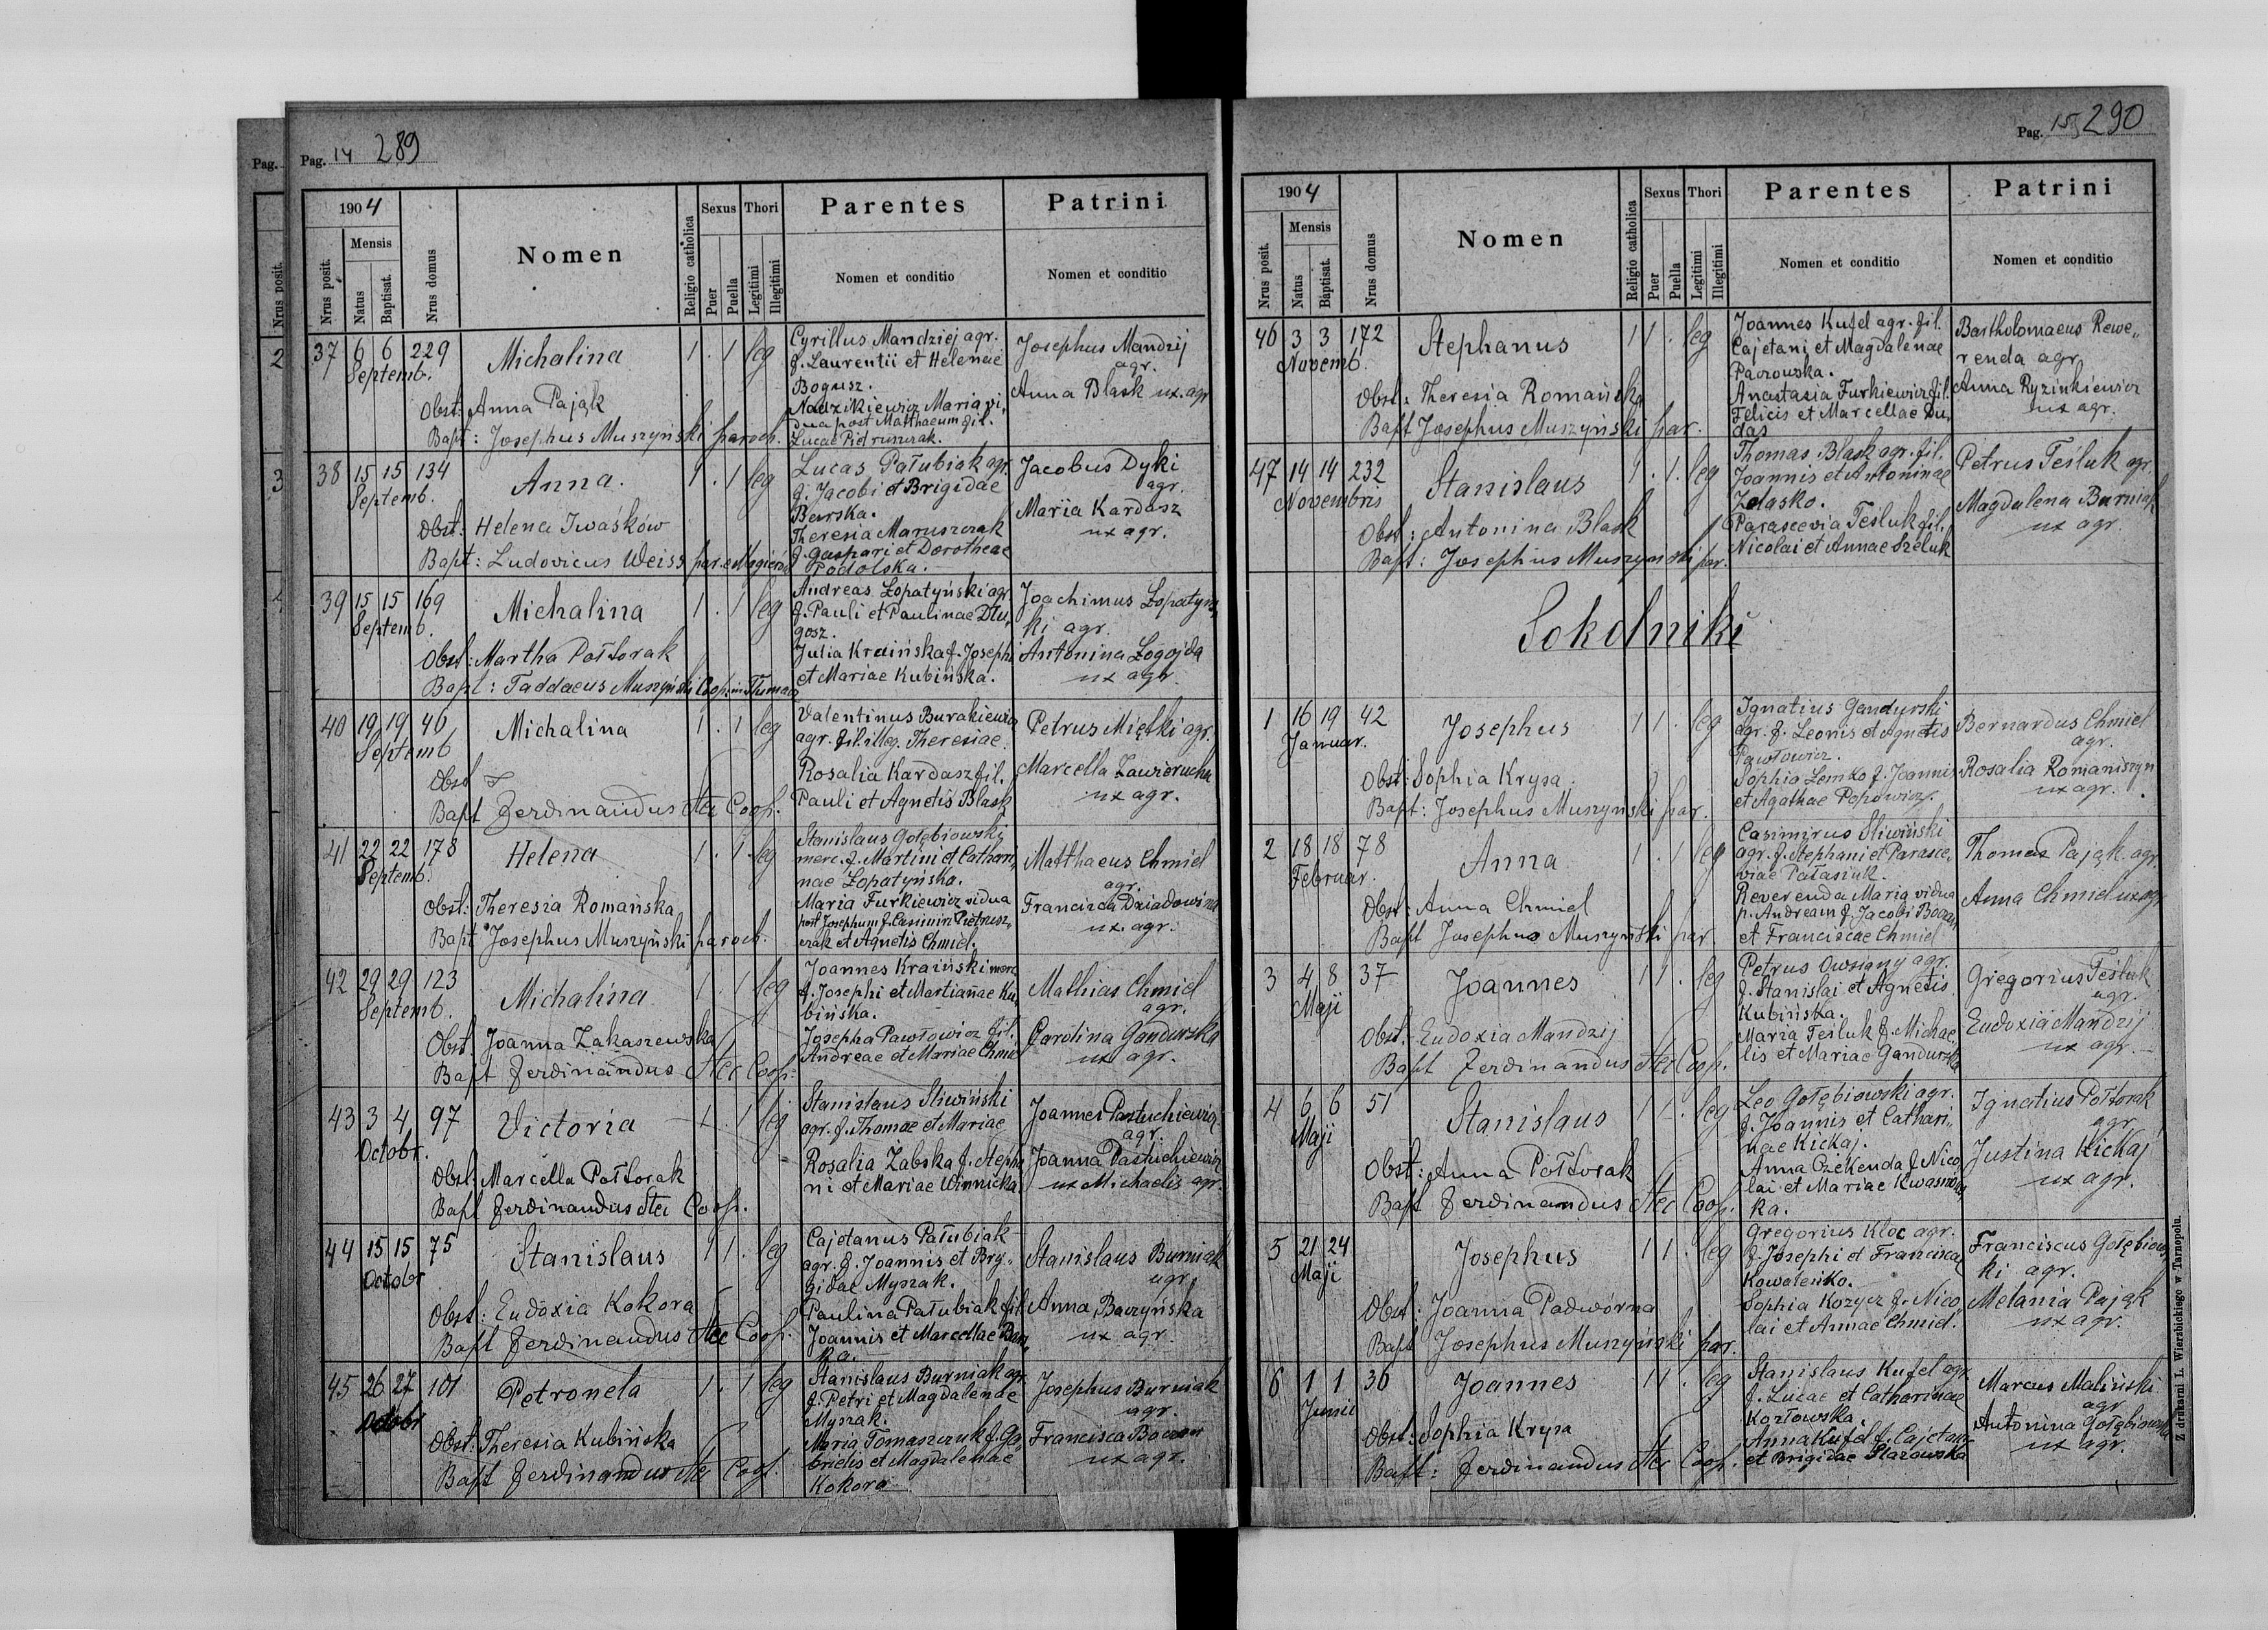 Pag.
Nrus posit.
2
3
Pag. 14 289
1904
Nrus posit.
Mensis
Natus
Baptisat.
Nrus domus
Nomen
Religio catholica
Sexus
Puer
Puella
Thori
Legitimi
Illegitimi
Parentes
Nomen et conditio
Patrini
Nomen et conditio
37 6 6 229 Michalina 1 . 1 leg
Septemb.
Obst: Anna Pająk
Bapt: Josephus Muszyński paroch.
Cyrillus Mandziej agr.
f. Laurentii et Helenae
Bogusz.
Nadzikiewicz Maria vi,
dua post Matthaeum fil.
Lucae Pietruszrak.
Josephus Mandzij
agr.
Anna Blask ux. agr
38 15 15 134 Anna. 1 . 1 leg
Septemb.
Obst: Helena Iwaśków
Bapt: Ludovicus Weiss par. e Magierów
Lucas Pałubiak agr.
f. Jacobi et Brigidae
Barska.
Theresia Maruszczak
f. Gaspari et Dorotheae
Podolska.
Jacobus Dyki
agr.
Maria Kardasz
ux agr.
39 15 15 169 Michalina 1 . 1 leg
Septemb.
Obst: Martha Połtorak
Bapt: Taddaeus Muszyński Coop. in Tłumacz
Andreas Łopatyński agr
f. Pauli et Paulinae Dłu,
gosz.
Julia Kraińska f. Josephi
et Mariae Kubińska.
Joachimus Łopatyńs,
ki agr.
Antonina Łogojda
ux agr.
40 19 19 40 Michalina 1 . 1 leg
Septemb
Obst
Bapt Ferdinandus Stec Coop.
Valentinus Burakiewicz
agr. fil. illeg. Theresiae.
Rosalia Kardasz fil.
Pauli et Agnetis Blask
Petrus Miętki agr.
Marcella Zawierucha
ux agr.
41 22 22 178 Helena 1 . 1 leg
Septemb.
Obst: Theresia Romańska
Bapt Josephus Muszyński paroch.
Stanislaus Gołębiowski
merc. f. Martini et Cathari,
nae Łopatyńska.
Maria Furkiewicz vidua
post Josephum f. Casimiri Pietrusz,
czak et Agnetis Chmiel.
Matthaeus Chmiel
agr.
Francisca Dziadowina
ux. agr.
42 29 29 123 Michalina 1 . 1 leg
Septemb.
Obst. Joanna Zakaszewska
Bapt Ferdinandus Stec Coop.
Joannes Kraiński merc
f. Josephi et Martianae Ku
bińska.
Josepha Pawłowicz fil.
Andreae et Mariae Chmiel
Mathias Chmiel
agr.
Carolina Gandurska
ux agr.
43 3 4 97 Victoria 1 . 1 leg
Octobr.
Obst. Marcella Połtorak
Bapt Ferdinandus Stec Coop.
Stanislaus Sliwiński
agr. f. Thomae et Mariae
Rosalia Żabska f. Stepha
ni et Mariae Winnicka.
Joannes Pastuchiewicz
agr.
Joanna Pastuchiewicz
ux Michaelis agr.
44 15 15 75 Stanislaus 1 1 . leg
Octobr
Obst: Eudoxia Kokora
Bapt Ferdinandus Stec Coop.
Cajetanus Pałubiak
agr. f. Joannis et Bry,
gidae Myszak.
Paulina Pałubiak fil
Joannis et Marcellae
ka.
Stanislaus Burniak
agr.
Anna Baczyńska
ux agr.
45 26 27 101 Petronela 1 . 1 leg
Octobr
Obst: Theresia Kubińska
Bapt Ferdinandus Stec Coop.
Stanislaus Burniak agr
f. Petri et Magdalenae
Myszak.
Maria Tomaszczuk f. Ga,
brielis et Magdalenae
Kokora
Josephus Burniak
agr.
Francisca Baczan
ux agr.
Pag. 15 290
1904
Nrus posit.
Mensis
Natus
Baptisat.
Nrus domus
Nomen
Religio catholica
Sexus
Puer
Puella
Thori
Legitimi
Illegitimi
Parentes
Nomen et conditio
Patrini
Nomen et conditio
46 3 3 172 Stephanus 1 1 . leg
Novemb.
Obst: Theresia Romańska
Bapt Josephus Muszyński par.
Joannes Kufel agr. fil.
Cajetani et Magdalenae
Anastasia Furkiewicz fil.
Felicis et Marcellae Du,
das
Bartholomaeus Rewe,,
renda agr
Anna Ryzinkiewicz
ux agr.
47 14 14 232 Stanislaus 1 1 . leg
Novembris
Obst: Antonina Blask
Bapt: Josephus Muszyński par.
Thomas Blask agr. fil.
Joannis et Antoninae
Żelasko.
Parascevia Teśluk fil.
Nicolai et Annae Szeluk
Petrus Teśluk agr.
Magdalena Burniak
ux agr.
Sokolniki
1 16 19 42 Josephus 1 1 . leg
Januar.
Obst: Sophia Krysa
Bapt: Josephus Muszyński par.
Ignatius Gandurski
agr. f. Leonis et Agnetis
Pawłowicz.
Sophia Lemko f. Joannis
et Agathae Popowicz.
Bernardus Chmiel
agr.
Rosalia Romaniszyn
ux agr.
2 18 18 78 Anna 1 . 1 leg
Februar.
Obst: Anna Chmiel
Bapt Josephus Muszyński par.
Casimirus Sliwiński
agr. f. Stephani et Parasce,
viae Pałasiuk.
Reverenda Maria vidua
p. Andream f. Jacobi Baczan
et Franciscae Chmiel
Thomas Pająk agr.
Anna Chmiel ux agr
3 4 8 37 Joannes 1 1 . leg
Maji
Obst: Eudoxia Mandzij
Bapt Ferdinandus Stec Coop.
Petrus Owsiany agr.
f. Stanislai et Agnetis
Kubińska.
Maria Teśluk f. Michae,
lis et Mariae Gandurska
Gregorius Teśluk
agr.
Eudoxia Mandzij
ux agr.
4 6 6 51 Stanislaus 1 1 . leg
Maji
Obst: Anna Połtorak
Bapt Ferdinandus Stec Coop.
Leo Gołębiowski agr.
f. Joannis et Cathari,,
nae Kickaj.
Anna Czekenda f. Nico
lai et Mariae Kwasnic
ka.
Ignatius Połtorak
agr
Justina Kickaj
ux agr.
5 21 24 Josephus 1 1 . leg
Maji
Obst: Joanna Padwórna
Bapt Josephus Muszyński par.
Gregorius Kloc agr.
f. Josephi et Francisca
Kowaleńko.
Sophia Kozycz f. Nico
lai et Annae Chmiel.
Franciscus Gołębiows
ki agr.
Melania Pająk
ux agr.
6 1 1 36 Joannes 1 1 . leg
Junii
Obst: Sophia Krysa
Bapt: Ferdinandus Stec Coop.
Stanislaus Kufel agr
f. Lucae et Catharinae
Kozłowska.
Anna Kufel f. Cajetani
et Brigidae
Marcus Maliński
agr
Antonina Gołębiowska
ux agr.
Z drukarni L. Wierzbickiego w Tarnopolu.